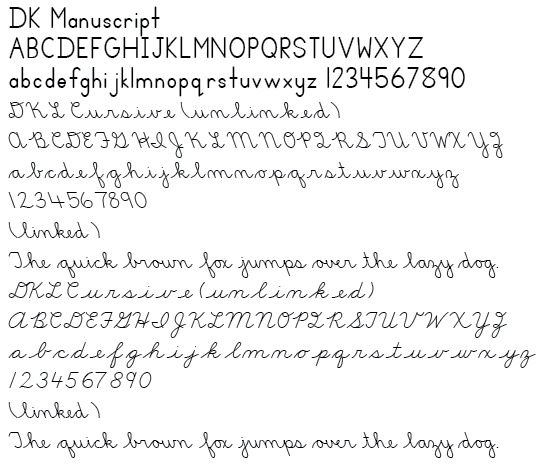 DK Manuscript
ABCDEFGHIJKLMNOPQRSTUVWXYZ
abcdefghijklmnopqrstuvwxyz 1234567890
DKL Cursive (unlinked)
ABCDEFGHIJKLMNOPQRSTUVWXYZ
abcdefghijklmnopqrstuvwxyz
1234567890
(linked)
The quick brown fox jumps over the lazy dog.
DKL Cursive (unlinked)
ABCDEFGHIJKLMNOPQRSTUVWXYZ
abcdefghijklmnopqrstuvwxyz
1234567890
(linked)
The quick brown fox jumps over the lazy dog.